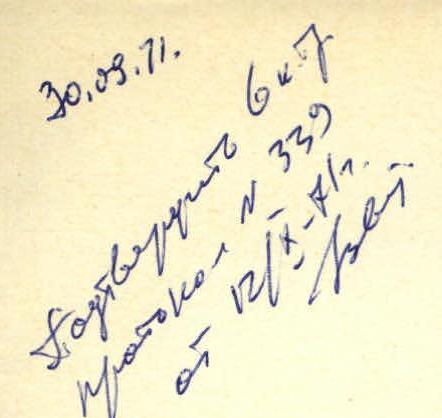 30.09.71.
Подтвердить 6 к.т
протокол N 339
от 12/X-71г.